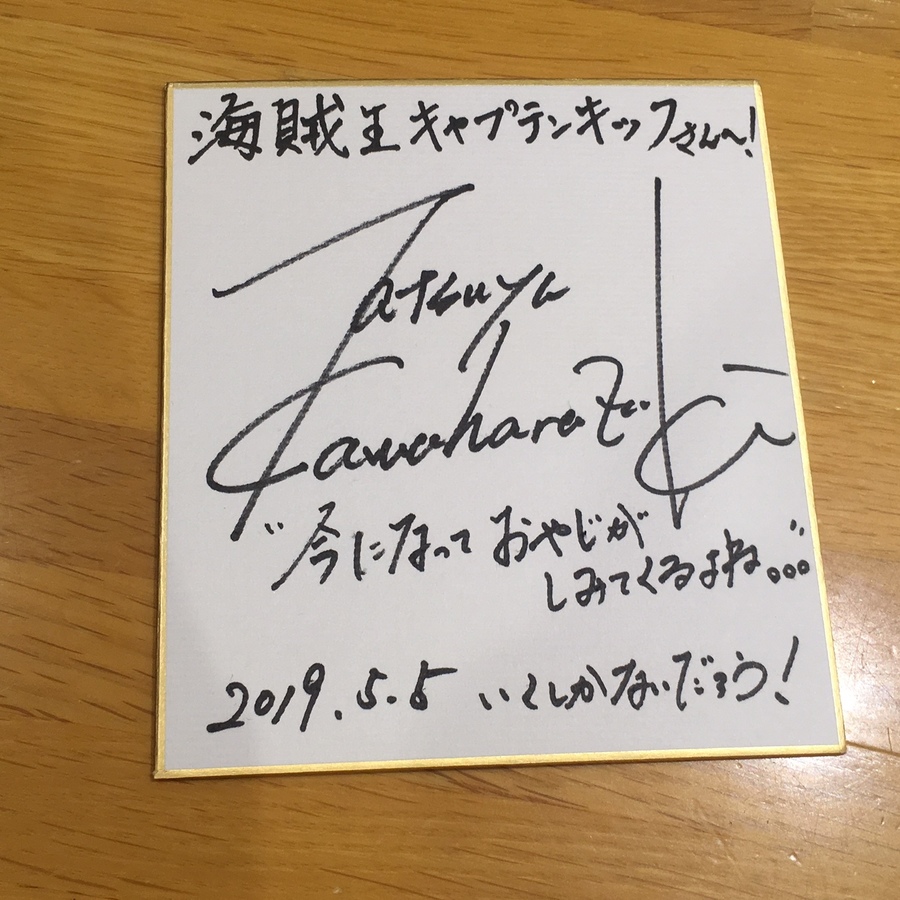 海賊王キャプテンキッフさん〜!
Tatsuya
Kawaharazuki
"今になっておやじが
しみてくるよね..."
2019.5.5 いくしかないだろう!